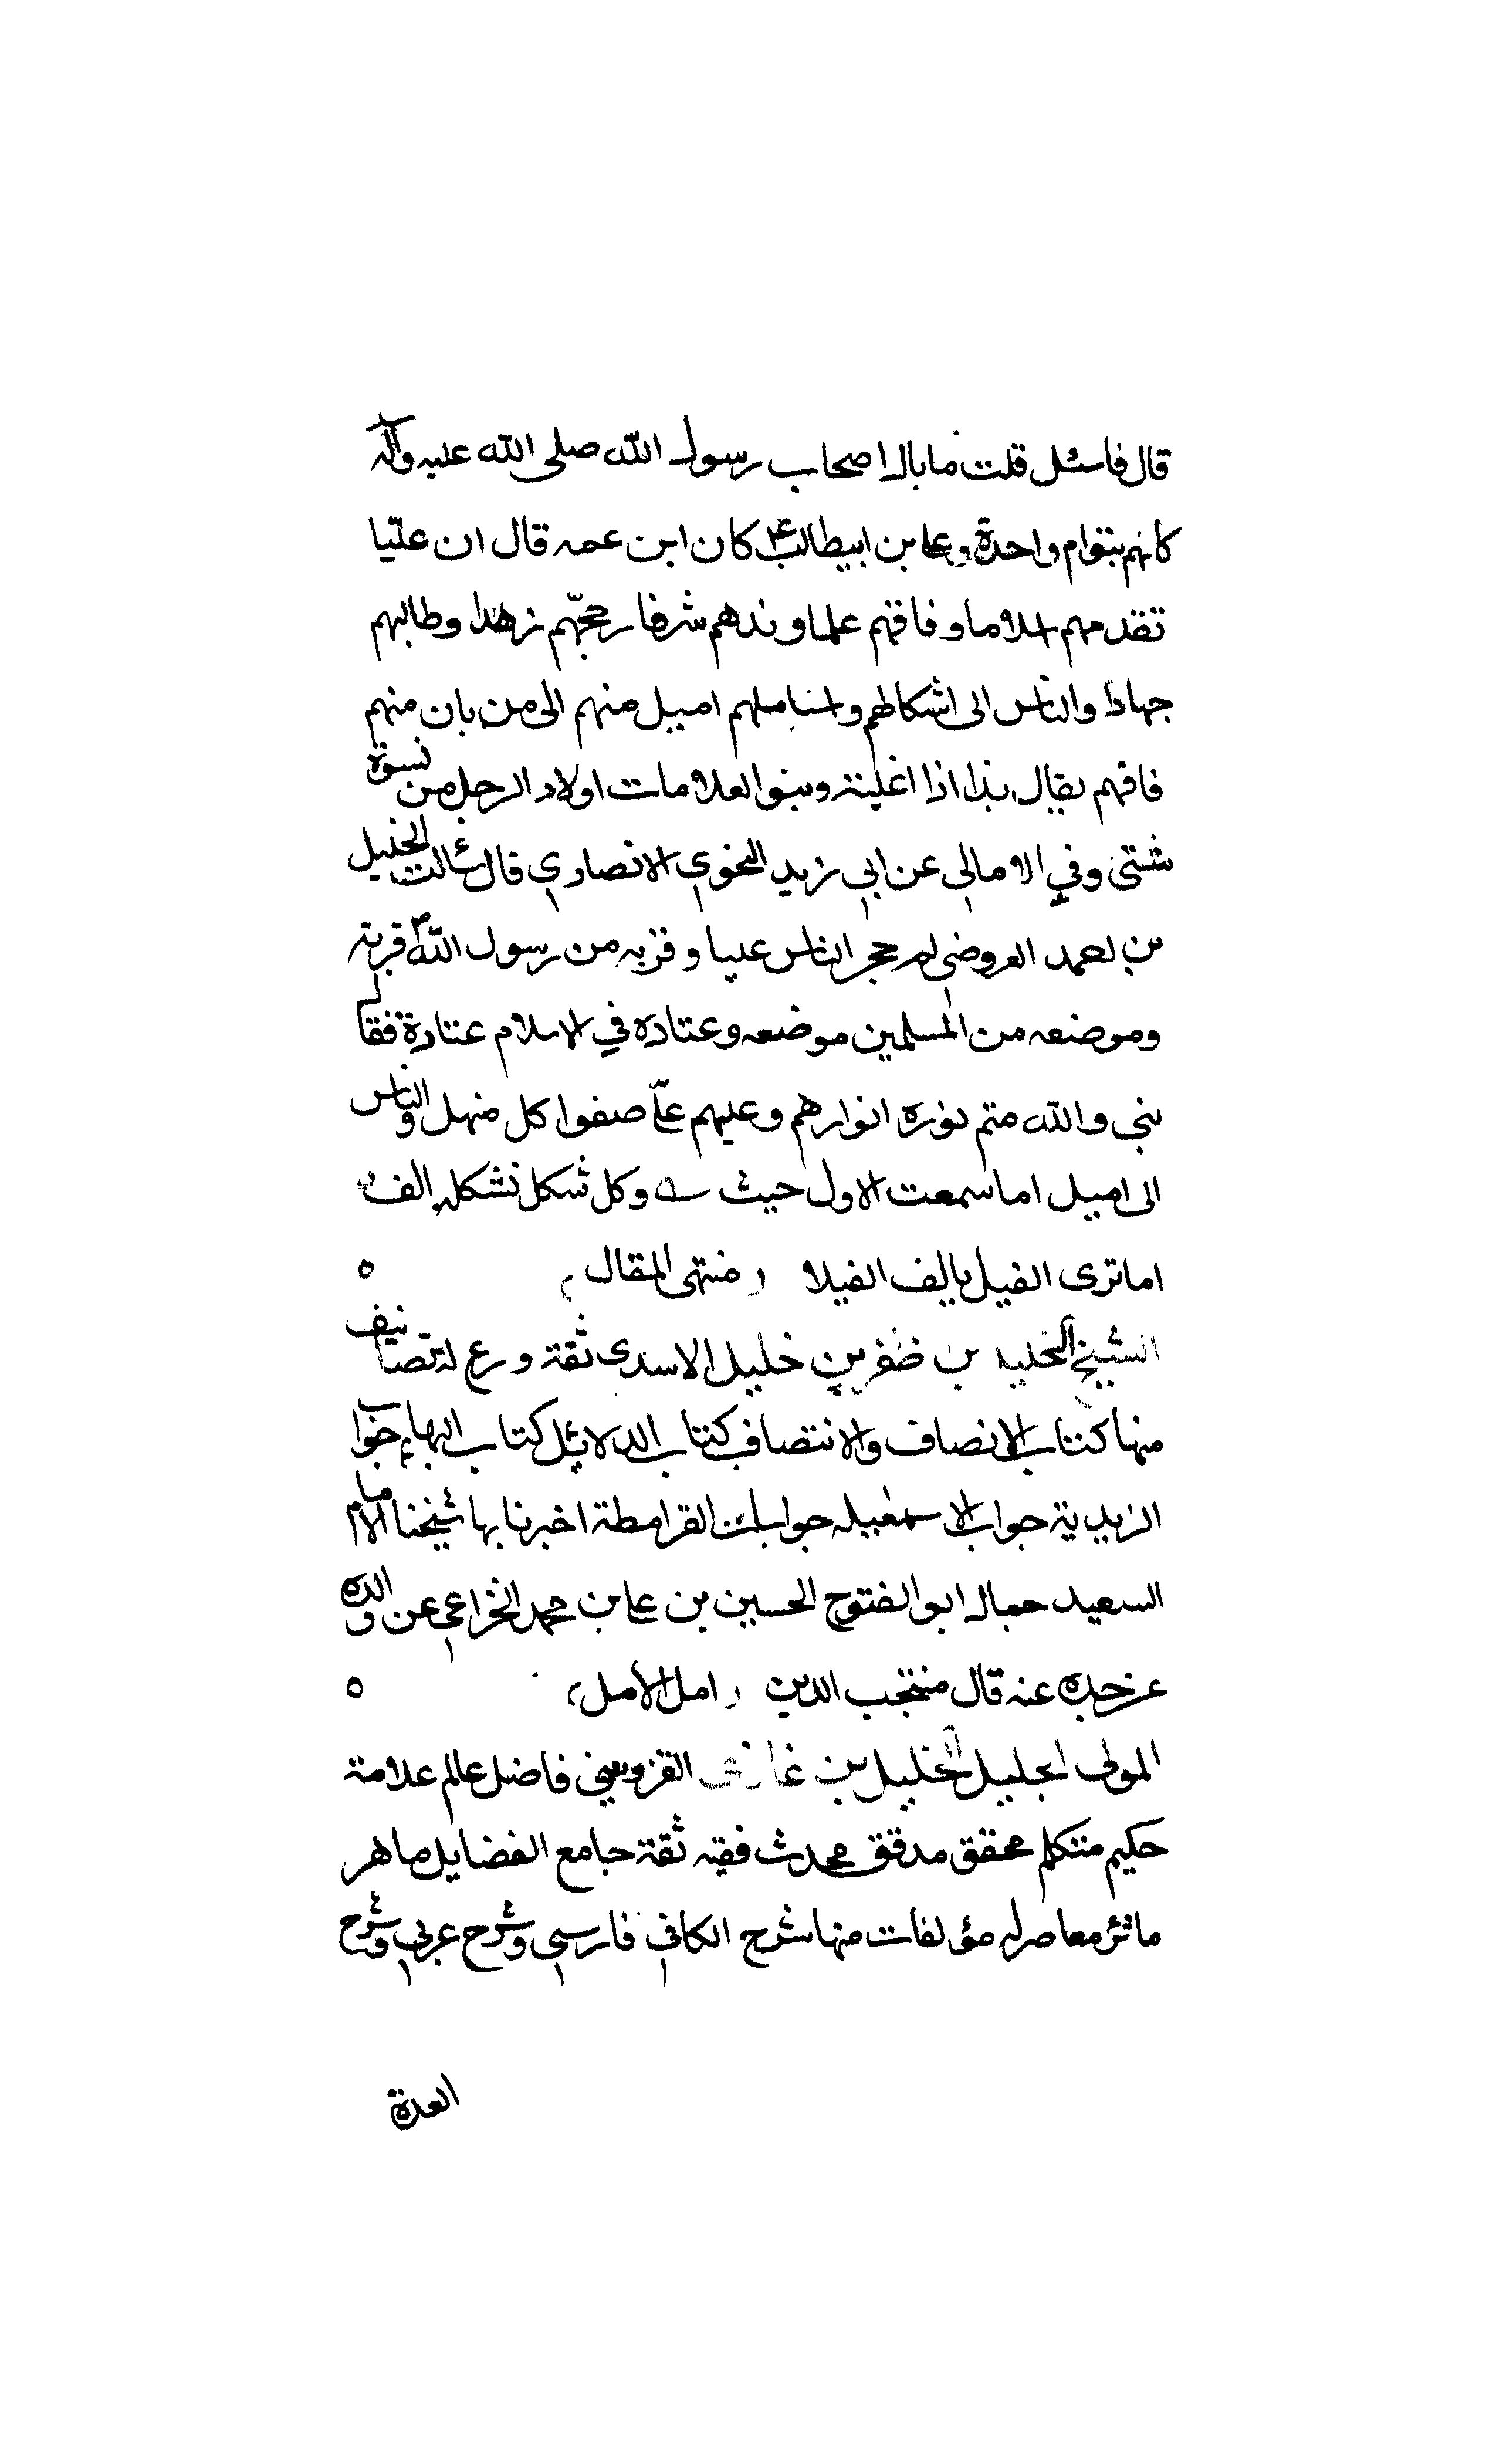 قال فاسئل قلت ما بال اصحاب رسول الله صلى الله عليه وآله
كانهم بنو ام واحدة وعلى بن ابيطالب ع كان ابن عمه قال ان عليا
تقدمهم اسلاما وفاقهم علما وبذهم شرفا ورجحهم زهدا وطالبهم
جهادا والناس الى اشكالهم واشباههم اميل منهم الى من بان منهم
فاقهم يقال بذا اذا اغلبنه وبنوا لعلامات اولاد الرجل من نسوة
شتى وفي الامالي عن ابي زيد النحوي الانصاري قال سئالت الخليل
بن احمد العروضي لم هجر الناس عليا وقربه من رسول الله ص قربه
وموضعه من المسلمين موضعه وعتاده في الاسلام عتادة فقال
بني والله متم نوره انوارهم وعليهم على صفوا كل منهل والناس
الى اميل اما سمعت الاول حيث وكل شكل نشكله الف
اما ترى الفيل يالف الفيلا (منتهى المقال) ٥
الشيخ الخليل بن ظفر بن خليل الاسدى ثقة ورع له تصانيف
منها كتاب الانصاف والانتصاف كتاب الدلائل كتاب البهاء جواب
الزيدية جواب الاسمعيليه جوابات القرامطة اخبرنا بها شيخنا الامام
السعيد جمال ابو الفتوح الحسين بن على بن محمد الخزاعي عن والده
عن جده عنه قال منتجب الدين (امل الامل) ٥
المولى الجليل الخليل بن غازى القزويني فاضل عالم علامة
حكيم متكلم محقق مدقق محدث فقيه ثقة جامع الفضايل ماهر
ماثر معاصر له مؤلفات منها شرح الكافي فارسي وشرح عربي وشرح
العدة